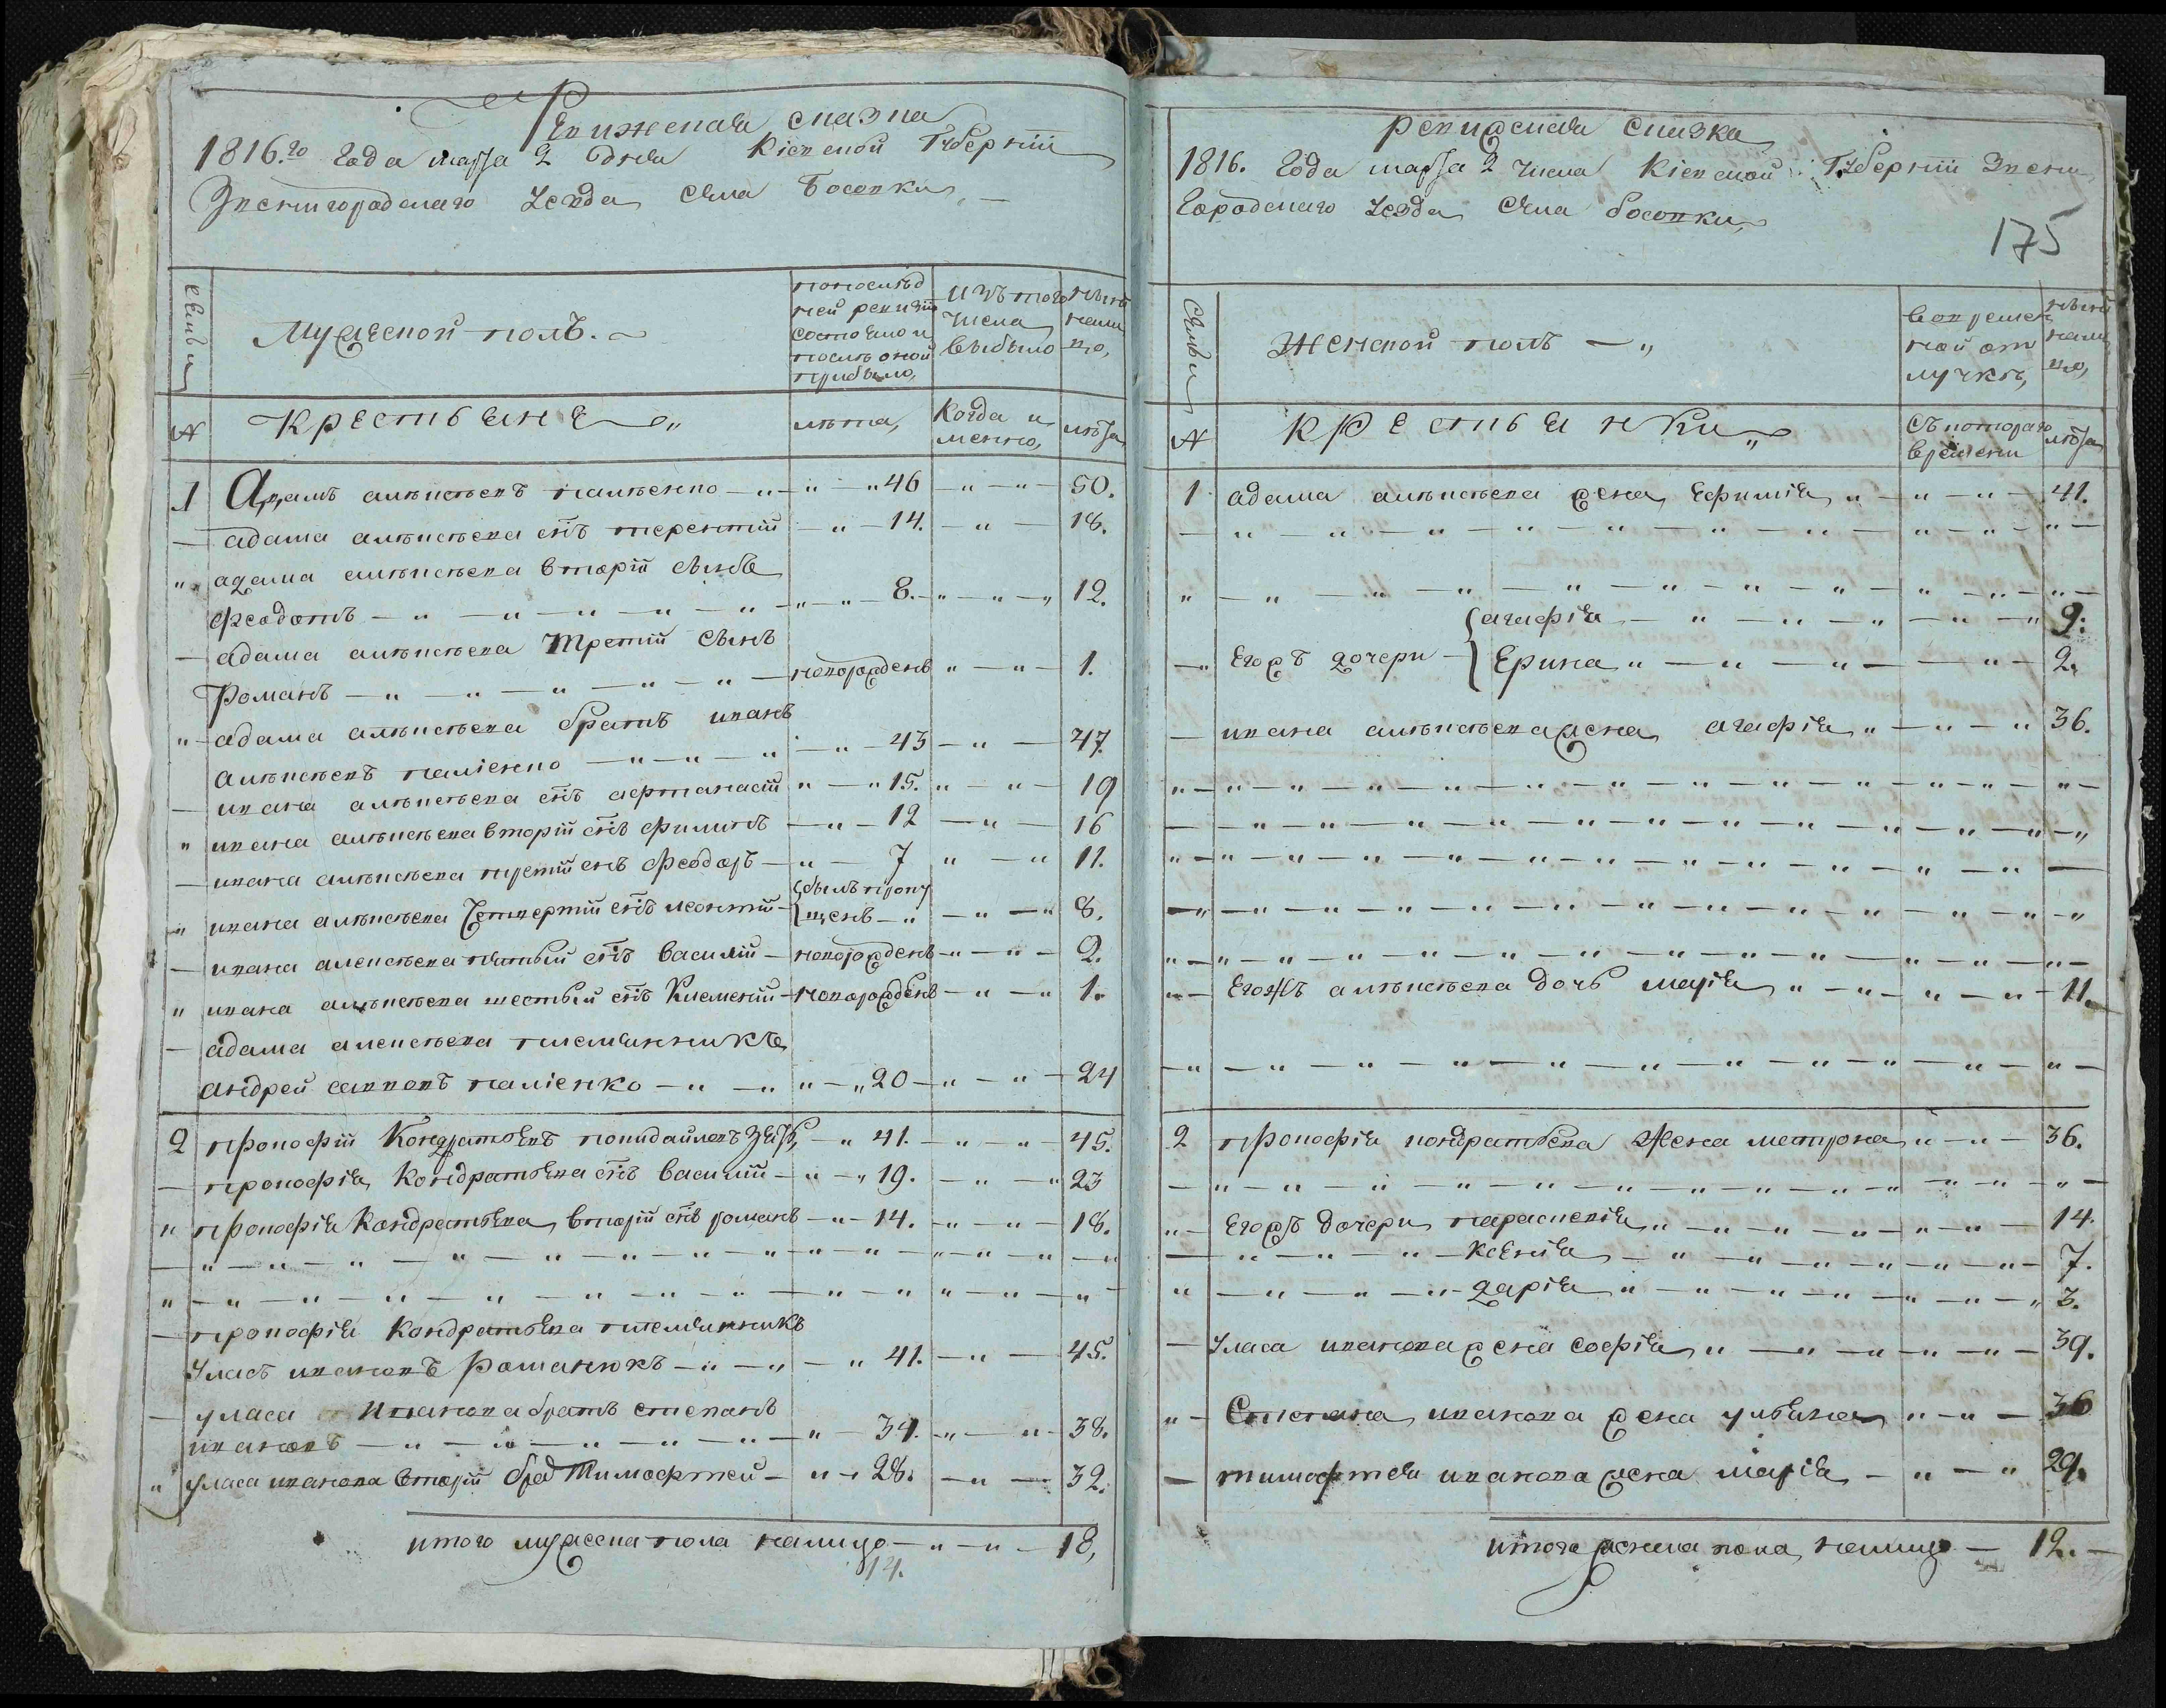 Ревижская сказка
1816.го Года марта 2 дня Кіевской Губерніи
Звенигородскаго уезда села Босовки
семьи
Мужеской полъ.
попослѣд
ней ревизіи
состояло и
послѣ оной
прибыло,
изъ того
числа
выбыло
нынѣ
нали
цо,
№
Крестьяне
лѣта,
когда и
менно,
лѣта
1 Адамъ алѣксѣевъ палѣенко 46 50.
адама алѣксѣева снъ терентий 14. 18.
адама алѣксѣева вторій сынъ
Феодотъ 8. 12.
адама алѣксѣева третій сынъ
Романъ неворожденъ 1.
адама алѣксѣева братъ иванъ
алѣксѣевъ паліенко 43 47
ивана алѣксѣева снъ афтанасій 15. 19
ивана алѣксѣева вторій снъ филипъ 12 16
ивана алѣксѣева третій снъ феодоръ 7 11.
ивана алѣксѣева Четвертій снъ леонтій былъ пропу
щенъ 8.
ивана алексѣева пятый снъ василій неворожденъ 2.
ивана алѣксѣева шестый снъ Клементій неворожденъ 1.
адама алексѣева племянникъ
андрей саввовъ паліенко 20 24
2 прокофій Кондратьевъ зять 41. 45.
прокофія Кондратьева снъ василій 19. 23
прокофія Кондратьева вторій снъ романъ 14. 18.
прокофія Кондратьева племянникъ
уласъ ивановъ Романюкъ 41. 45.
уласа Иванова братъ степанъ
ивановъ 34. 38.
уласа иванова вторій брат Тимофтей 28. 32.
итого мужеска пола налицо 18,
14.
ревижская сказка
1816. Года марта 2 числа Кіевской Губерніи Звени
Городскаго уезда села босовки
175
семьи
Женской полъ
вовремен
ной от
лучкѣ,
нынѣ
нали
цо,
№
крестьянки
съ котораго
времени
лѣта
1 адама алѣксѣева жена Ефимія 41.
агафія 9.
Егожъ дочери Ерина 2.
ивана алѣксѣева жена агафія 36.
Егожъ алѣксѣева дочь марія 11.
2 прокофія кондратьева жена метрона 36.
Егожъ дочери параскевія 14.
Ксенія 7.
дарія 3.
уласа иванова жена софія 39.
Степана иванова жена ульяна 36
тимофтея иванова жена марія 29.
итого женска пола налицо 12.